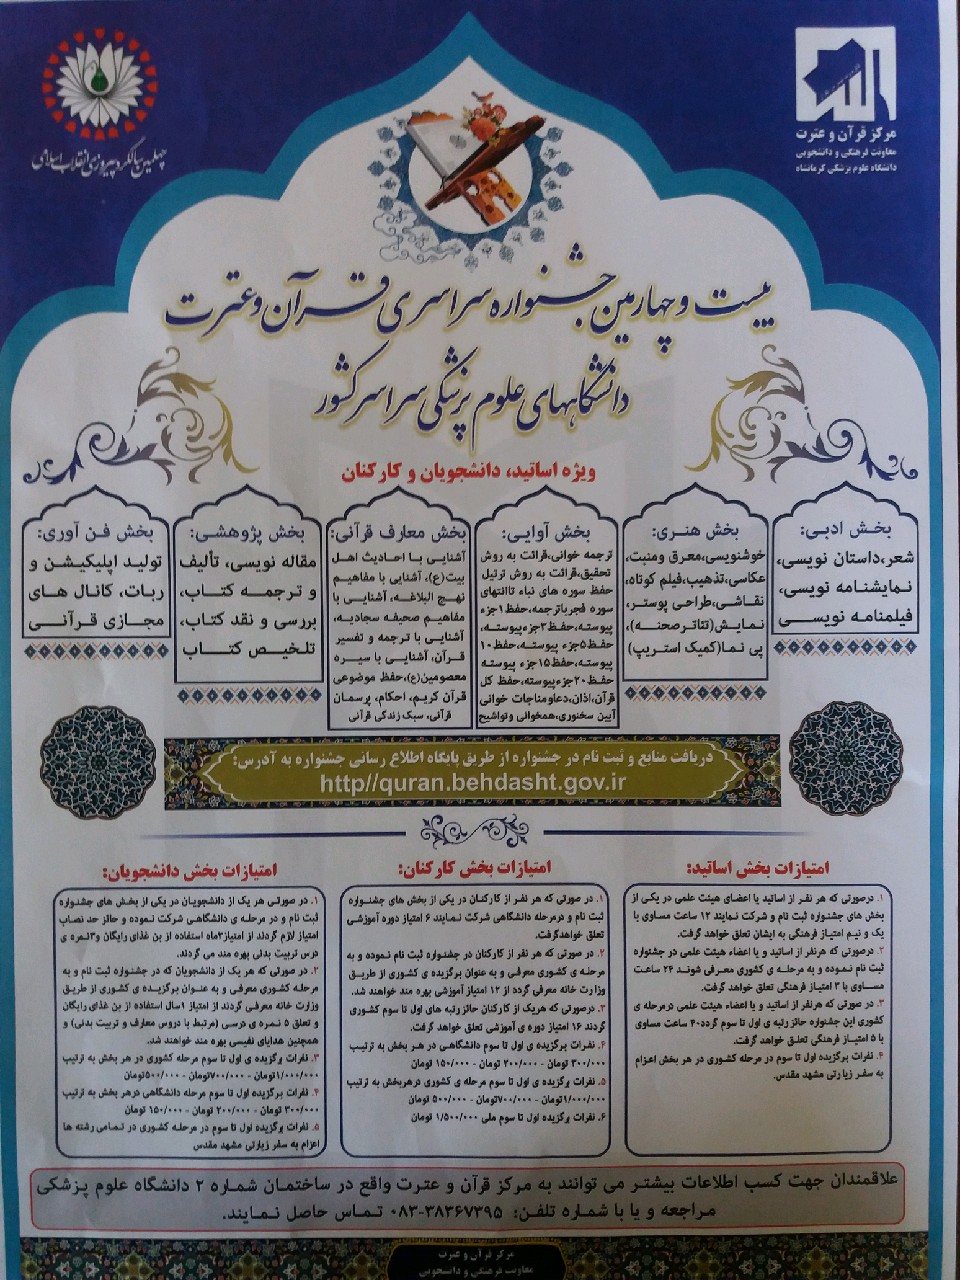 مرکز قرآن و عترت
معاونت فرهنگی و دانشجویی
دانشگاه علوم پزشکی کرمانشاه
چهلمین سالگرد پیروزی انقلاب اسلامی
بیست و چهارمین جشنواره سراسری قرآن و عترت
دانشگاههای علوم پزشکی سراسر کشور
ویژه اساتید، دانشجویان و کارکنان
بخش ادبی:
شعر،داستان نویسی،
نمایشنامه نویسی،
فیلمنامه نویسی
بخش هنری:
خوشنویسی،معرق ومنبت،
عکاسی،تذهیب،فیلم کوتاه،
نقاشی،طراحی پوستر،
نمایش(تئاترصحنه)،
پی نما(کمیک استریپ)
بخش آوایی:
ترجمه خوانی،قرائت به روش
تحقیق،قرائت به روش ترتیل
حفظ سوره های نباء تاانتهای
سوره فجرباترجمه،حفظ۱جزء
پیوسته،حفظ۳جزء پیوسته،
حفظ۵جزء پیوسته،حفظ۱۰
پیوسته،حفظ۱۵جزء پیوسته
حفظ۲۰جزءپیوسته،حفظ کل
قرآن،اذان،دعاومناجات خوانی
آیین سخنوری،همخوانی وتواشیح
بخش معارف قرآنی:
آشنایی با احادیث اهل
بیت(ع)، آشنایی با مفاهیم
نهج البلاغه، آشنایی با
مفاهیم صحیفه سجادیه،
آشنایی با ترجمه و تفسیر
قرآن، آشنایی با سیره
معصومین(ع)،حفظ موضوعی
قرآن کریم، احکام، پرسمان
قرآنی، سبک زندگی قرآنی
بخش پژوهشی:
مقاله نویسی، تألیف
و ترجمه کتاب،
بررسی و نقد کتاب،
تلخیص کتاب
بخش فن آوری:
تولید اپلیکیشن و
ربات، کانال های
مجازی قرآنی
دریافت منابع و ثبت نام در جشنواره از طریق پایگاه اطلاع رسانی جشنواره به آدرس:
http//quran.behdasht.gov.ir
امتیازات بخش اساتید:
۱. درصورتی که هر نفر از اساتید یا اعضای هیئت علمی در یکی از
بخش های جشنواره ثبت نام و شرکت نمایند ۱۲ ساعت مساوی با
یک و نیم امتیاز فرهنگی به ایشان تعلق خواهد گرفت.
۲. درصورتی که هرنفر از اساتید و یا اعضاء هیئت علمی در جشنواره
ثبت نام نموده و به مرحله ی کشوری معرفی شوند ۲۴ ساعت
مساوی با ۳ امتیاز فرهنگی تعلق خواهد گرفت.
۳. در صورتی که هرنفر از اساتید و یا اعضاء هیئت علمی درمرحله ی
کشوری این جشنواره حائز رتبه ی اول تا سوم گردد۴۰ ساعت مساوی
با ۵ امتیاز فرهنگی تعلق خواهد گرفت.
۴. نفرات برگزیده اول تا سوم در مرحله کشوری در هر بخش اعزام
به سفر زیارتی مشهد مقدس.
امتیازات بخش کارکنان:
۱. در صورتی که هر نفر از کارکنان در یکی از بخش های جشنواره
ثبت نام و درمرحله دانشگاهی شرکت نمایند ۶ امتیاز دوره آموزشی
تعلق خواهدگرفت.
۲. در صورتی که هر نفر از کارکنان در جشنواره ثبت نام نموده و به
مرحله ی کشوری معرفی و به عنوان برگزیده ی کشوری از طریق
وزارت خانه معرفی گردد از ۱۲ امتیاز آموزشی بهره مند خواهند شد.
۳. درصورتی که هریک از کارکنان حائز رتبه های اول تا سوم کشوری
گردند ۱۶ امتیاز دوره ی آموزشی تعلق خواهد گرفت.
۶. نفرات برگزیده ی اول تا سوم دانشگاهی در هر بخش به ترتیب
۳۰۰/۰۰۰ تومان - ۲۰۰/۰۰۰ تومان - ۱۵۰/۰۰۰ تومان
۵. نفرات برگزیده ی اول تا سوم مرحله ی کشوری درهربخش به ترتیب
۱/۰۰۰/۰۰۰تومان - ۷۰۰/۰۰۰تومان - ۵۰۰/۰۰۰ تومان
۶. نفرات برگزیده اول تا سوم ملی ۱/۵۰۰/۰۰۰ تومان
امتیازات بخش دانشجویان:
۱. در صورتی هر یک از دانشجویان در یکی از بخش های جشنواره
ثبت نام و در مرحله ی دانشگاهی شرکت نموده و حائز حد نصاب
امتیاز لازم گردند از امتیاز۲ماه استفاده از بن غذای رایگان و۳نمره ی
درس تربیت بدنی بهره مند می گردند.
۲. در صورتی که هر یک از دانشجویان که در جشنواره ثبت نام و به
مرحله کشوری معرفی و به عنوان برگزیده ی کشوری از طریق
وزارت خانه معرفی گردند از امتیاز ۱سال استفاده از بن غذای رایگان
و تعلق ۵ نمره ی درسی (مرتبط با دروس معارف و تربیت بدنی) و
همچنین هدایای نفیسی بهره مند خواهند شد.
۳. نفرات برگزیده ی اول تا سوم مرحله کشوری در هر بخش به ترتیب
۱/۰۰۰/۰۰۰تومان - ۷۰۰/۰۰۰تومان - ۵۰۰/۰۰۰تومان
۴. نفرات برگزیده ی اول تا سوم مرحله دانشگاهی درهر بخش به ترتیب
۳۰۰/۰۰۰ تومان - ۲۰۰/۰۰۰ تومان - ۱۵۰/۰۰۰ تومان
۵. نفرات برگزیده اول تا سوم در مرحله کشوری در تمامی رشته ها
اعزام به سفر زیارتی مشهد مقدس
علاقمندان جهت کسب اطلاعات بیشتر می توانند به مرکز قرآن و عترت واقع در ساختمان شماره ۲ دانشگاه علوم پزشکی
مراجعه و یا با شماره تلفن: ۳۸۳۶۷۳۹۵-۰۸۳ تماس حاصل نمایند.
مرکز قرآن و عترت
معاونت فرهنگی و دانشجویی